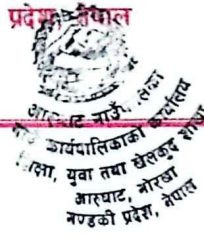 प्रदेश, नेपाल
आरुघाट गाउँ
कार्यपालिकाको कार्यालय
शिक्षा, युवा तथा खेलकुद शाखा
आरुघाट, गोरखा
गण्डकी प्रदेश, नेपाल